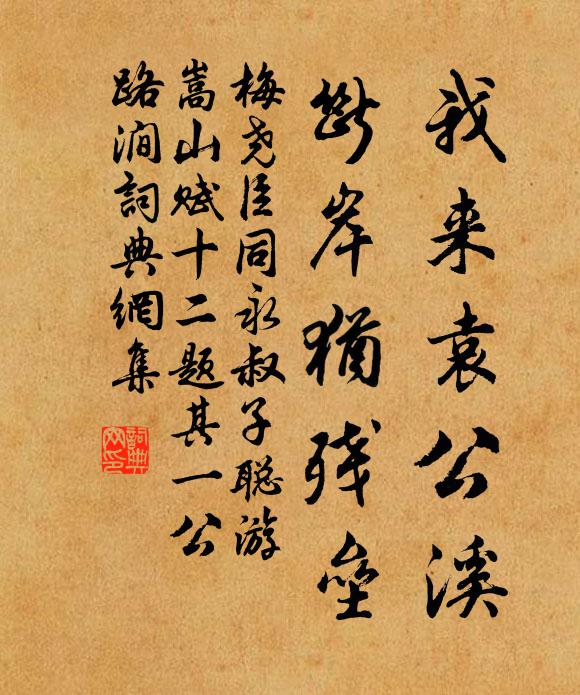 我来袁公溪
断岸猶残壘
梅尧臣同永叔子聪游
嵩山赋十二题其一公
路澗詞典網集
詞典
网印